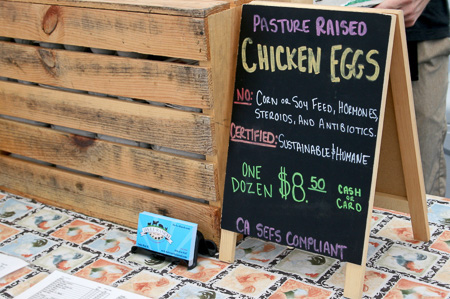 PASTURE RAISED
CHICKEN EGGS
NO: CORN OR SOY FEED, HORMONES,
STEROIDS, AND ANTIBIOTICS.
CERTIFIED: SUSTAINABLE & HUMANE
ONE
DOZEN $8.50
CASH
OR
CARD
CA SEFS COMPLIANT